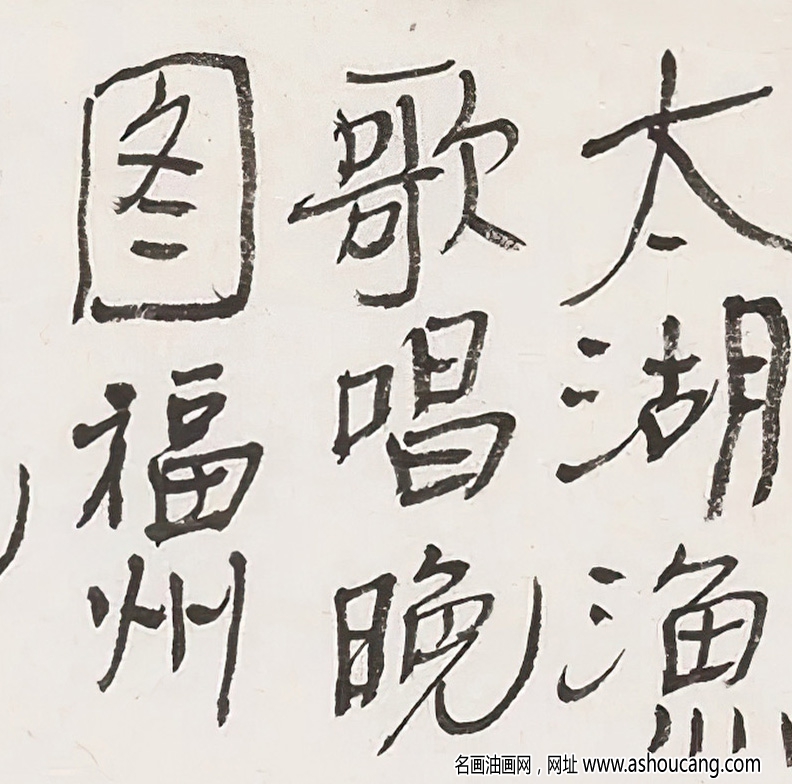 太湖渔
歌唱晚
图福州
名画油画网，网址 www.ashoucang.com